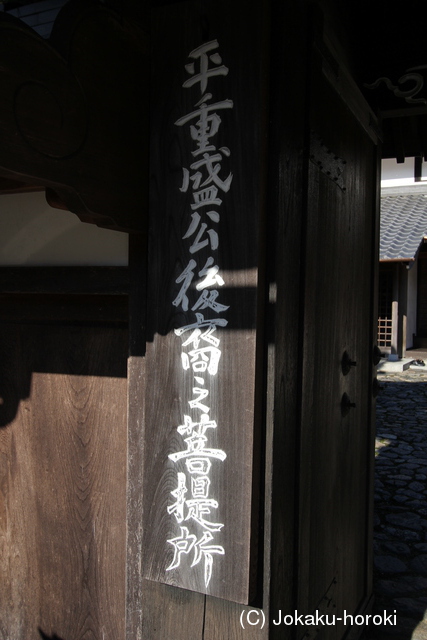 平重盛公後裔之菩提所
(C) Jokaku-horoki